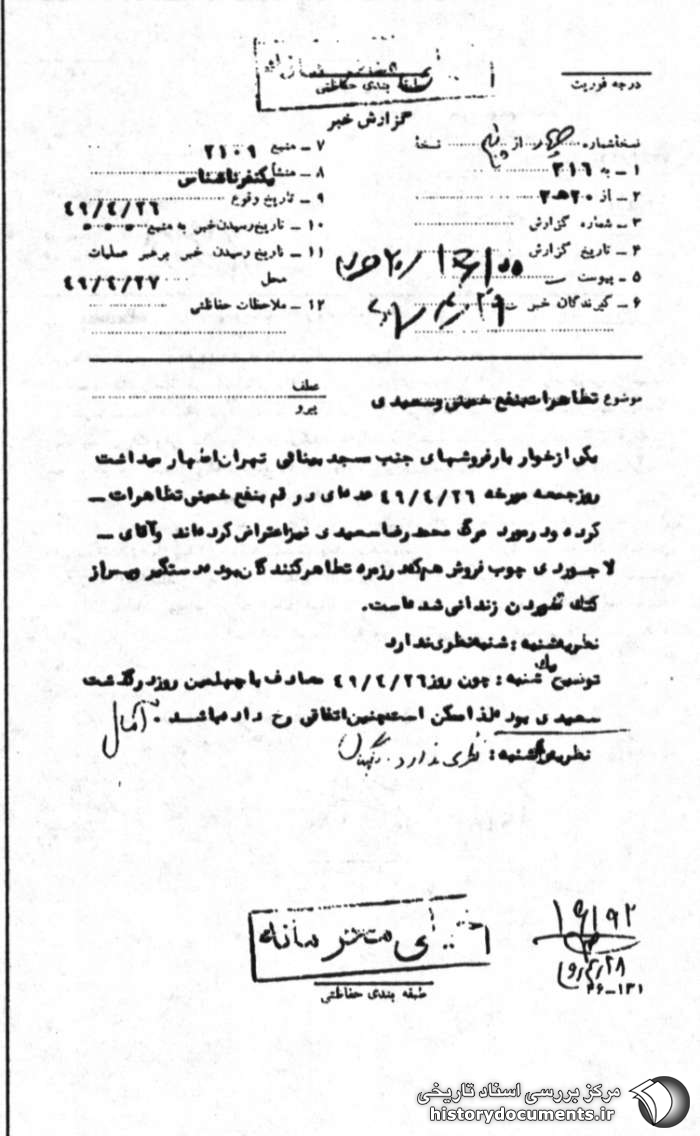 درجه فوریت
طبقه بندی حفاظتی
گزارش خبر
نسخه شماره از نسخه
۱ ـ به ۳۱۶
۲ ـ از ۲۰ﻫ۲
۳ ـ شماره گزارش
۴ ـ تاریخ گزارش
۵ ـ پیوست
۶ ـ گیرندگان خبر
۷ ـ منبع ۲۱۰۹
۸ ـ منشأ یکنفر ناشناس
۹ ـ تاریخ وقوع ۴۹/۴/۲۶
۱۰ ـ تاریخ رسیدن خبر به منبع
۱۱ ـ تاریخ رسیدن خبر برهبر عملیات
محل ۴۹/۴/۲۷
۱۲ ـ ملاحظات حفاظتی
موضوع تظاهرات بنفع خمینی و سعیدی
عطف
پیرو
یکی از خوار بار فروشهای جنب مسجد تهران اظهار میداشت
روز جمعه مورخه ۴۹/۴/۲۶ عده‌ای در قم بنفع خمینی تظاهرات ـ
کرده و در مورد مرگ محمد رضا سعیدی نیز اعتراض کرده‌اند و آقای ـ
لاجوردی چوب فروش هم که در زمره تظاهر کنندگان بوده دستگیر و پس از
کتک خوردن زندانی شده است.
نظریه شنبه : شنبه نظری ندارد
توضیح یک شنبه : چون روز ۴۹/۴/۲۶ مصادف با چهلمین روز درگذشت
سعیدی بوده لذا ممکن است چنین اتفاقی رخ داده باشد .
نظریه شنبه : نظری ندارد .
خیلی محرمانه
طبقه بندی حفاظتی
۲۸/۴/
۳۶-۱۳۱
مرکز بررسی اسناد تاریخی
historydocuments.ir